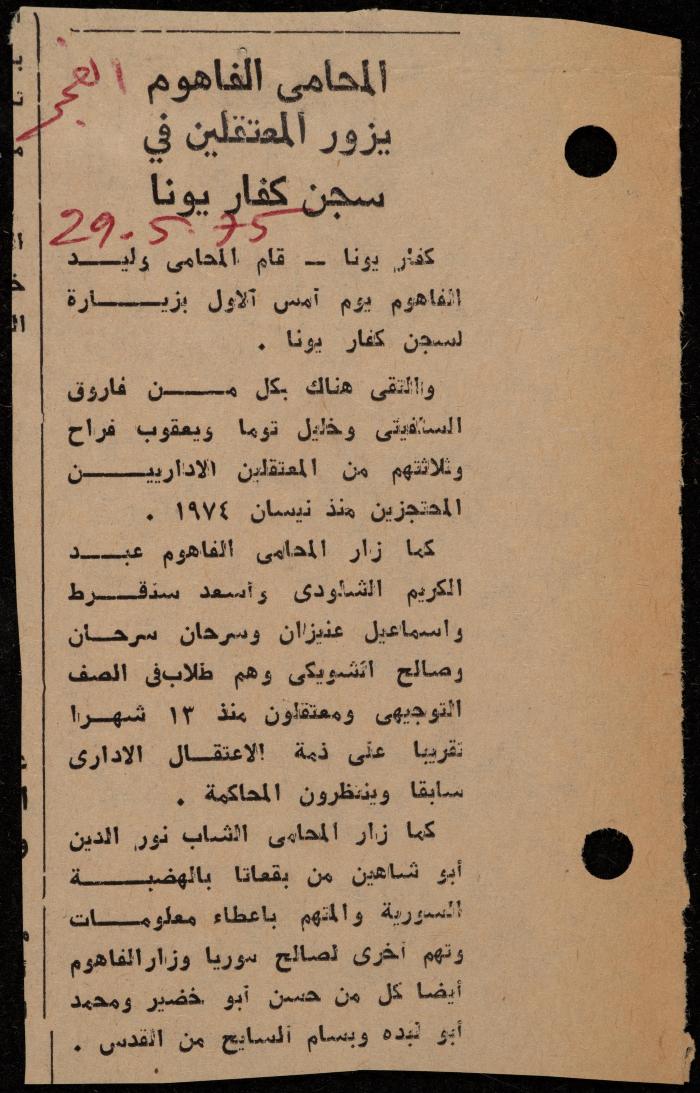 الفجر
المحامى الفاهوم
يزور المعتقلين في
سجن كفار يونا
29.5.75
كفار يونا – قام المحامى وليد
الفاهوم يوم أمس الاول بزيارة
لسجن كفار يونا .
والتقى هناك بكل من فاروق
السلفيتى وخليل توما ويعقوب فراح
وثلاثتهم من المعتقلين الاداريين
المحتجزين منذ نيسان ١٩٧٤ .
كما زار المحامى الفاهوم عبد
الكريم الشلودى وأسعد سنقرط
واسماعيل عنيزان وسرحان سرحان
وصالح الشويكى وهم طلاب فى الصف
التوجيهى ومعتقلون منذ ١٣ شهرا
تقريبا على ذمة الاعتقال الادارى
سابقا وينتظرون المحاكمة .
كما زار المحامى الشاب نور الدين
أبو شاهين من بقعاتا بالهضبة
السورية والمتهم باعطاء معلومات
وتهم أخرى لصالح سوريا وزار الفاهوم
أيضا كل من حسن أبو خضير ومحمد
أبو لبده وبسام السايح من القدس .